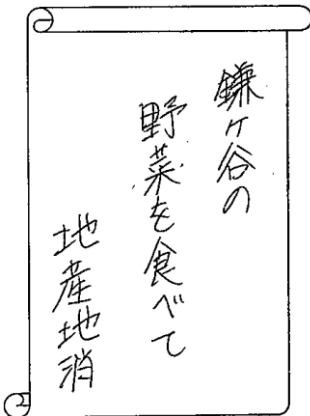 鎌ケ谷の
野菜を食べて
地産地消